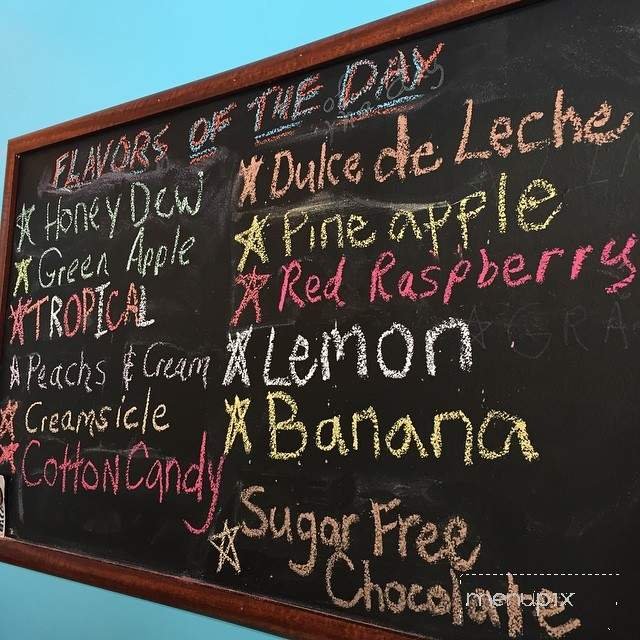 FLAVORS OF THE DAY
Honey Dew
Green Apple
TROPICAL
Peachs & Cream
Creamsicle
Cotton Candy
Dulce de Leche
Pine apple
Red Raspberry
Lemon
Banana
Sugar Free
Chocolate
menupix